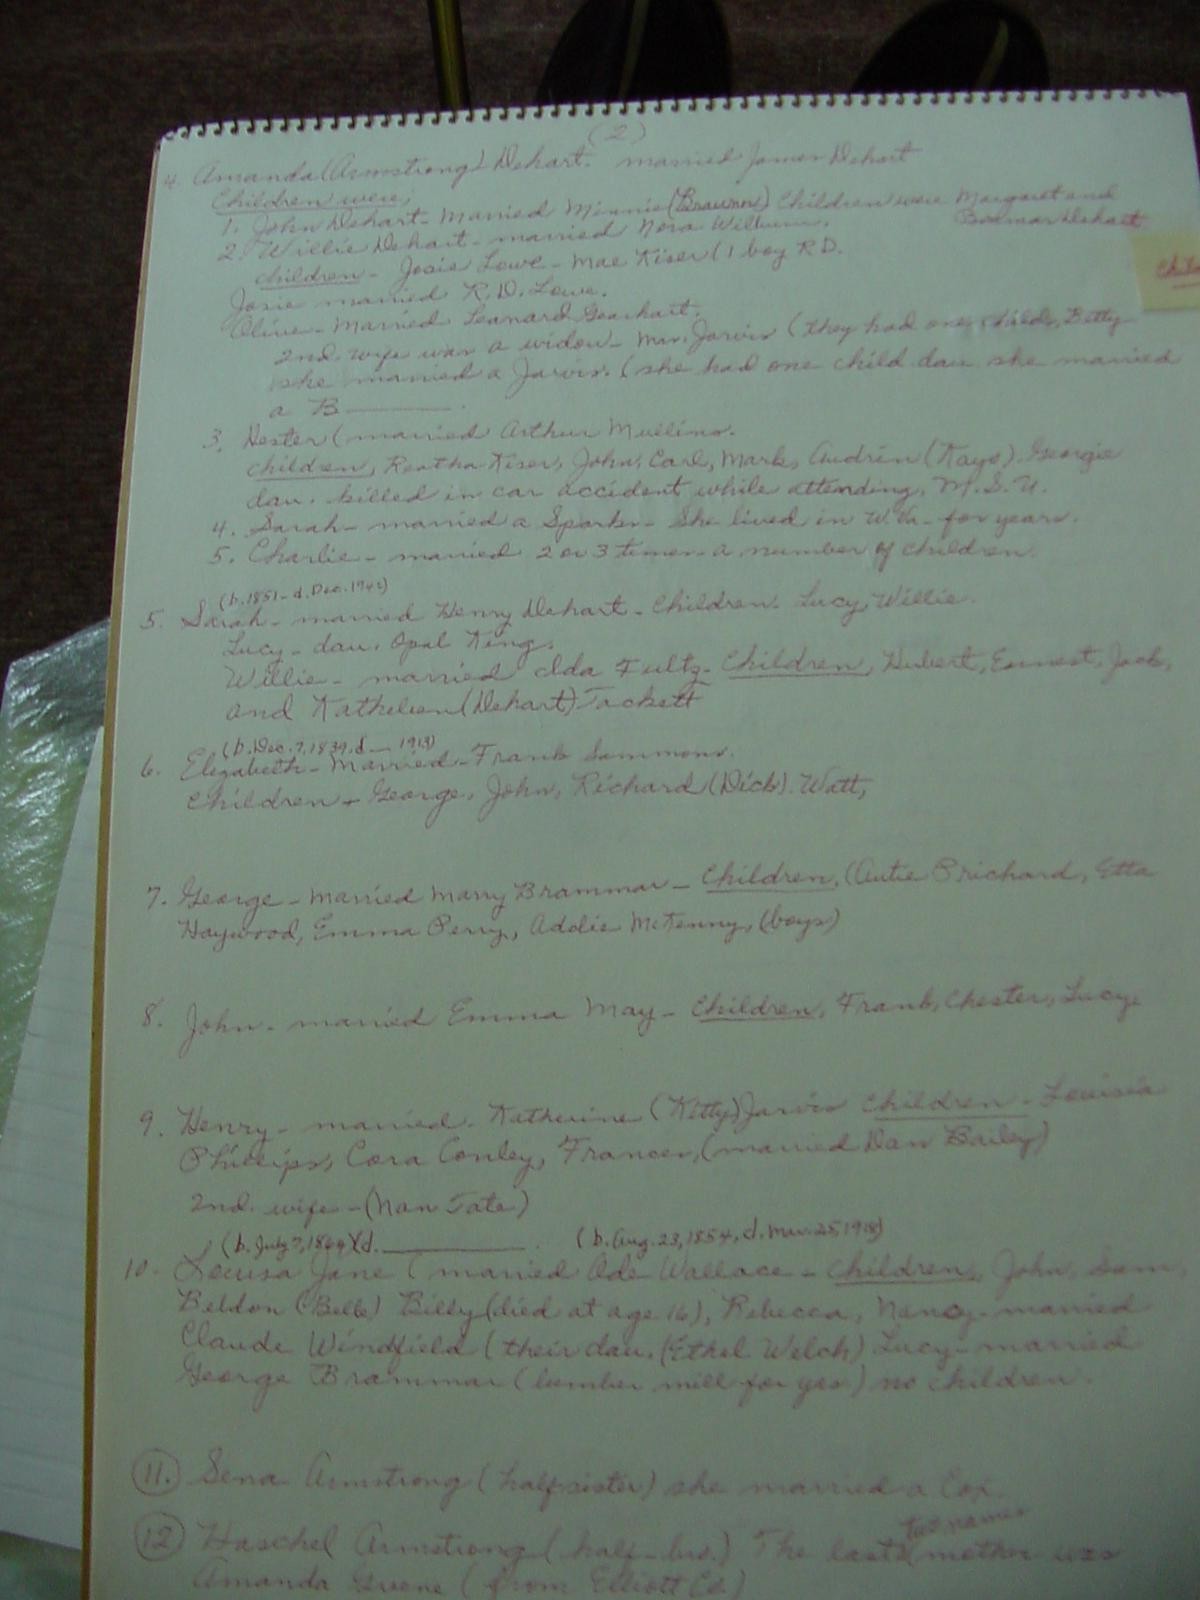 (2)
4. Amanda (Armstrong) Dehart. married James Dehart
Children were;
1. John Dehart - Married Minnie (Braunn) Children were Margaret and
Bosmar Dehart
2. Willie Dehart - married Nora Wilburn.
children - Josie Lowe - Mae Kiser (1 boy R.D.
Josie married R. D. Lowe.
Olive - Married Leanard Gearhart.
2nd. wife was a widow - Mrs. Jarvis (they had one child, Betty
she married a Jarvis. (she had one child dau she married
a B
3. Hester (married Arthur Mullins.
children, Reatha Kiser, John, Carl, Mark, Audrin (Kaye) Georgie
dau. killed in car accident while attending, M.S.U.
4. Sarah - married a Sparks - She lived in W.Va - for years.
5. Charlie - married 2 or 3 times - a number of children.
(b. 1851 - d. Dec. 1942)
5. Sarah - married Henry Dehart - Children. Lucy, Willie.
Lucy - dau. Opal King.
Willie - married Ida Fultz - Children, Hubert, Earnest, Jack,
and Kathelien (Dehart) Tackett
(b. Dec. 7, 1839, d — 1913)
6. Elizabeth - Married - Frank Sammons.
Children - George, John, Richard (Dick). Watt,
7. George - married Marry Brammar - Children, (Autie Prichard, Etta
Haywood, Emma Perry, Addie McKenny, (boys)
8. John - married Emma May - Children, Frank, Chester, Lucy.
9. Henry - married. Katherine (Kitty) Jarvis Children - Louisia
Phillips, Cora Conley, Frances, (married Dan Bailey)
2nd. wife - (Nan Tate)
(b. July 7, 1864) (d. (b. Aug. 23, 1854, d. Mar. 25, 1918)
10. Louisa Jane (married Ode Wallace - Children, John, Sam,
Beldon (Belle) Billy (died at age 16), Rebecca, Nancy - married
Claude Windfield (their dau. (Ethel Welch) Lucy - married
George Brammar (lumber mill for yrs) no children.
11. Sena Armstrong (half sister) she married a Cox.
two names
12 Haschel Armstrong (half - bro.) The last mother was
Amanda Greene (from Elliott Co.)